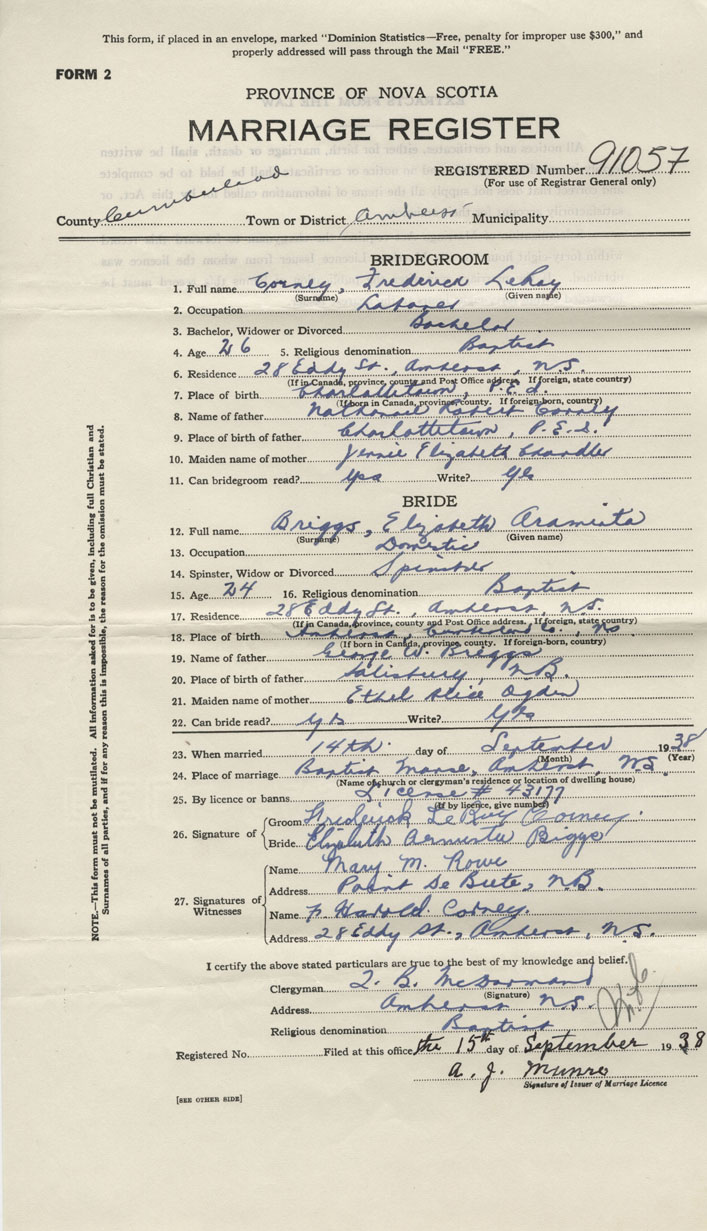 This form, if placed in an envelope, marked "Dominion Statistics—Free, penalty for improper use $300," and
properly addressed will pass through the Mail "FREE."
FORM 2
PROVINCE OF NOVA SCOTIA
MARRIAGE REGISTER
REGISTERED Number 91057
(For use of Registrar General only)
County Cumberland Town or District Amherst Municipality
BRIDEGROOM
1. Full name Corney, Frederick LeRoy
(Surname) (Given name)
2. Occupation Laborer
3. Bachelor, Widower or Divorced Bachelor
4. Age 26 5. Religious denomination Baptist
6. Residence 28 Eddy St., Amherst, N.S.
(If in Canada, province, county and Post Office address. If foreign, state country)
7. Place of birth Charlottetown, P.E.I.
(If born in Canada, province, county. If foreign-born, country)
8. Name of father Nathaniel Robert Corney
9. Place of birth of father Charlottetown, P.E.I.
10. Maiden name of mother Jennie Elizabeth Chandler
11. Can bridegroom read? Yes Write? Yes
BRIDE
12. Full name Briggs, Elizabeth Araminta
(Surname) (Given name)
13. Occupation Domestic
14. Spinster, Widow or Divorced Spinster
15. Age 24 16. Religious denomination Baptist
17. Residence 28 Eddy St., Amherst, N.S.
(If in Canada, province, county and Post Office address. If foreign, state country)
18. Place of birth Amherst, Co., NS
(If born in Canada, province, county. If foreign-born, country)
19. Name of father George W. Briggs
20. Place of birth of father Salisbury, N.B.
21. Maiden name of mother Ethel Alice Ogden
22. Can bride read? Yes Write? Yes
23. When married 14th day of September 1938
(Month) (Year)
24. Place of marriage Baptist Manse, Amherst, N.S.
(Name of church or clergyman's residence or location of dwelling house)
25. By licence or banns License # 43177
(If by licence, give number)
26. Signature of
Groom Frederick LeRoy Corney.
Bride Elizabeth Briggs
27. Signatures of Witnesses
Name Mary M. Rowe
Address Point De Bute, N.B.
Name F. Harold Corney.
Address 28 Eddy St., Amherst, N.S.
I certify the above stated particulars are true to the best of my knowledge and belief.
Clergyman B. McDormand
(Signature)
Address Amherst N.S.
Religious denomination Baptist
Registered No. Filed at this office the 15th day of September 1938
A. J. Munro
Signature of Issuer of Marriage Licence
[SEE OTHER SIDE]
NOTE.—This form must not be mutilated. All information asked for is to be given, including full Christian and
Surnames of all parties, and if for any reason this is impossible, the reason for the omission must be stated.